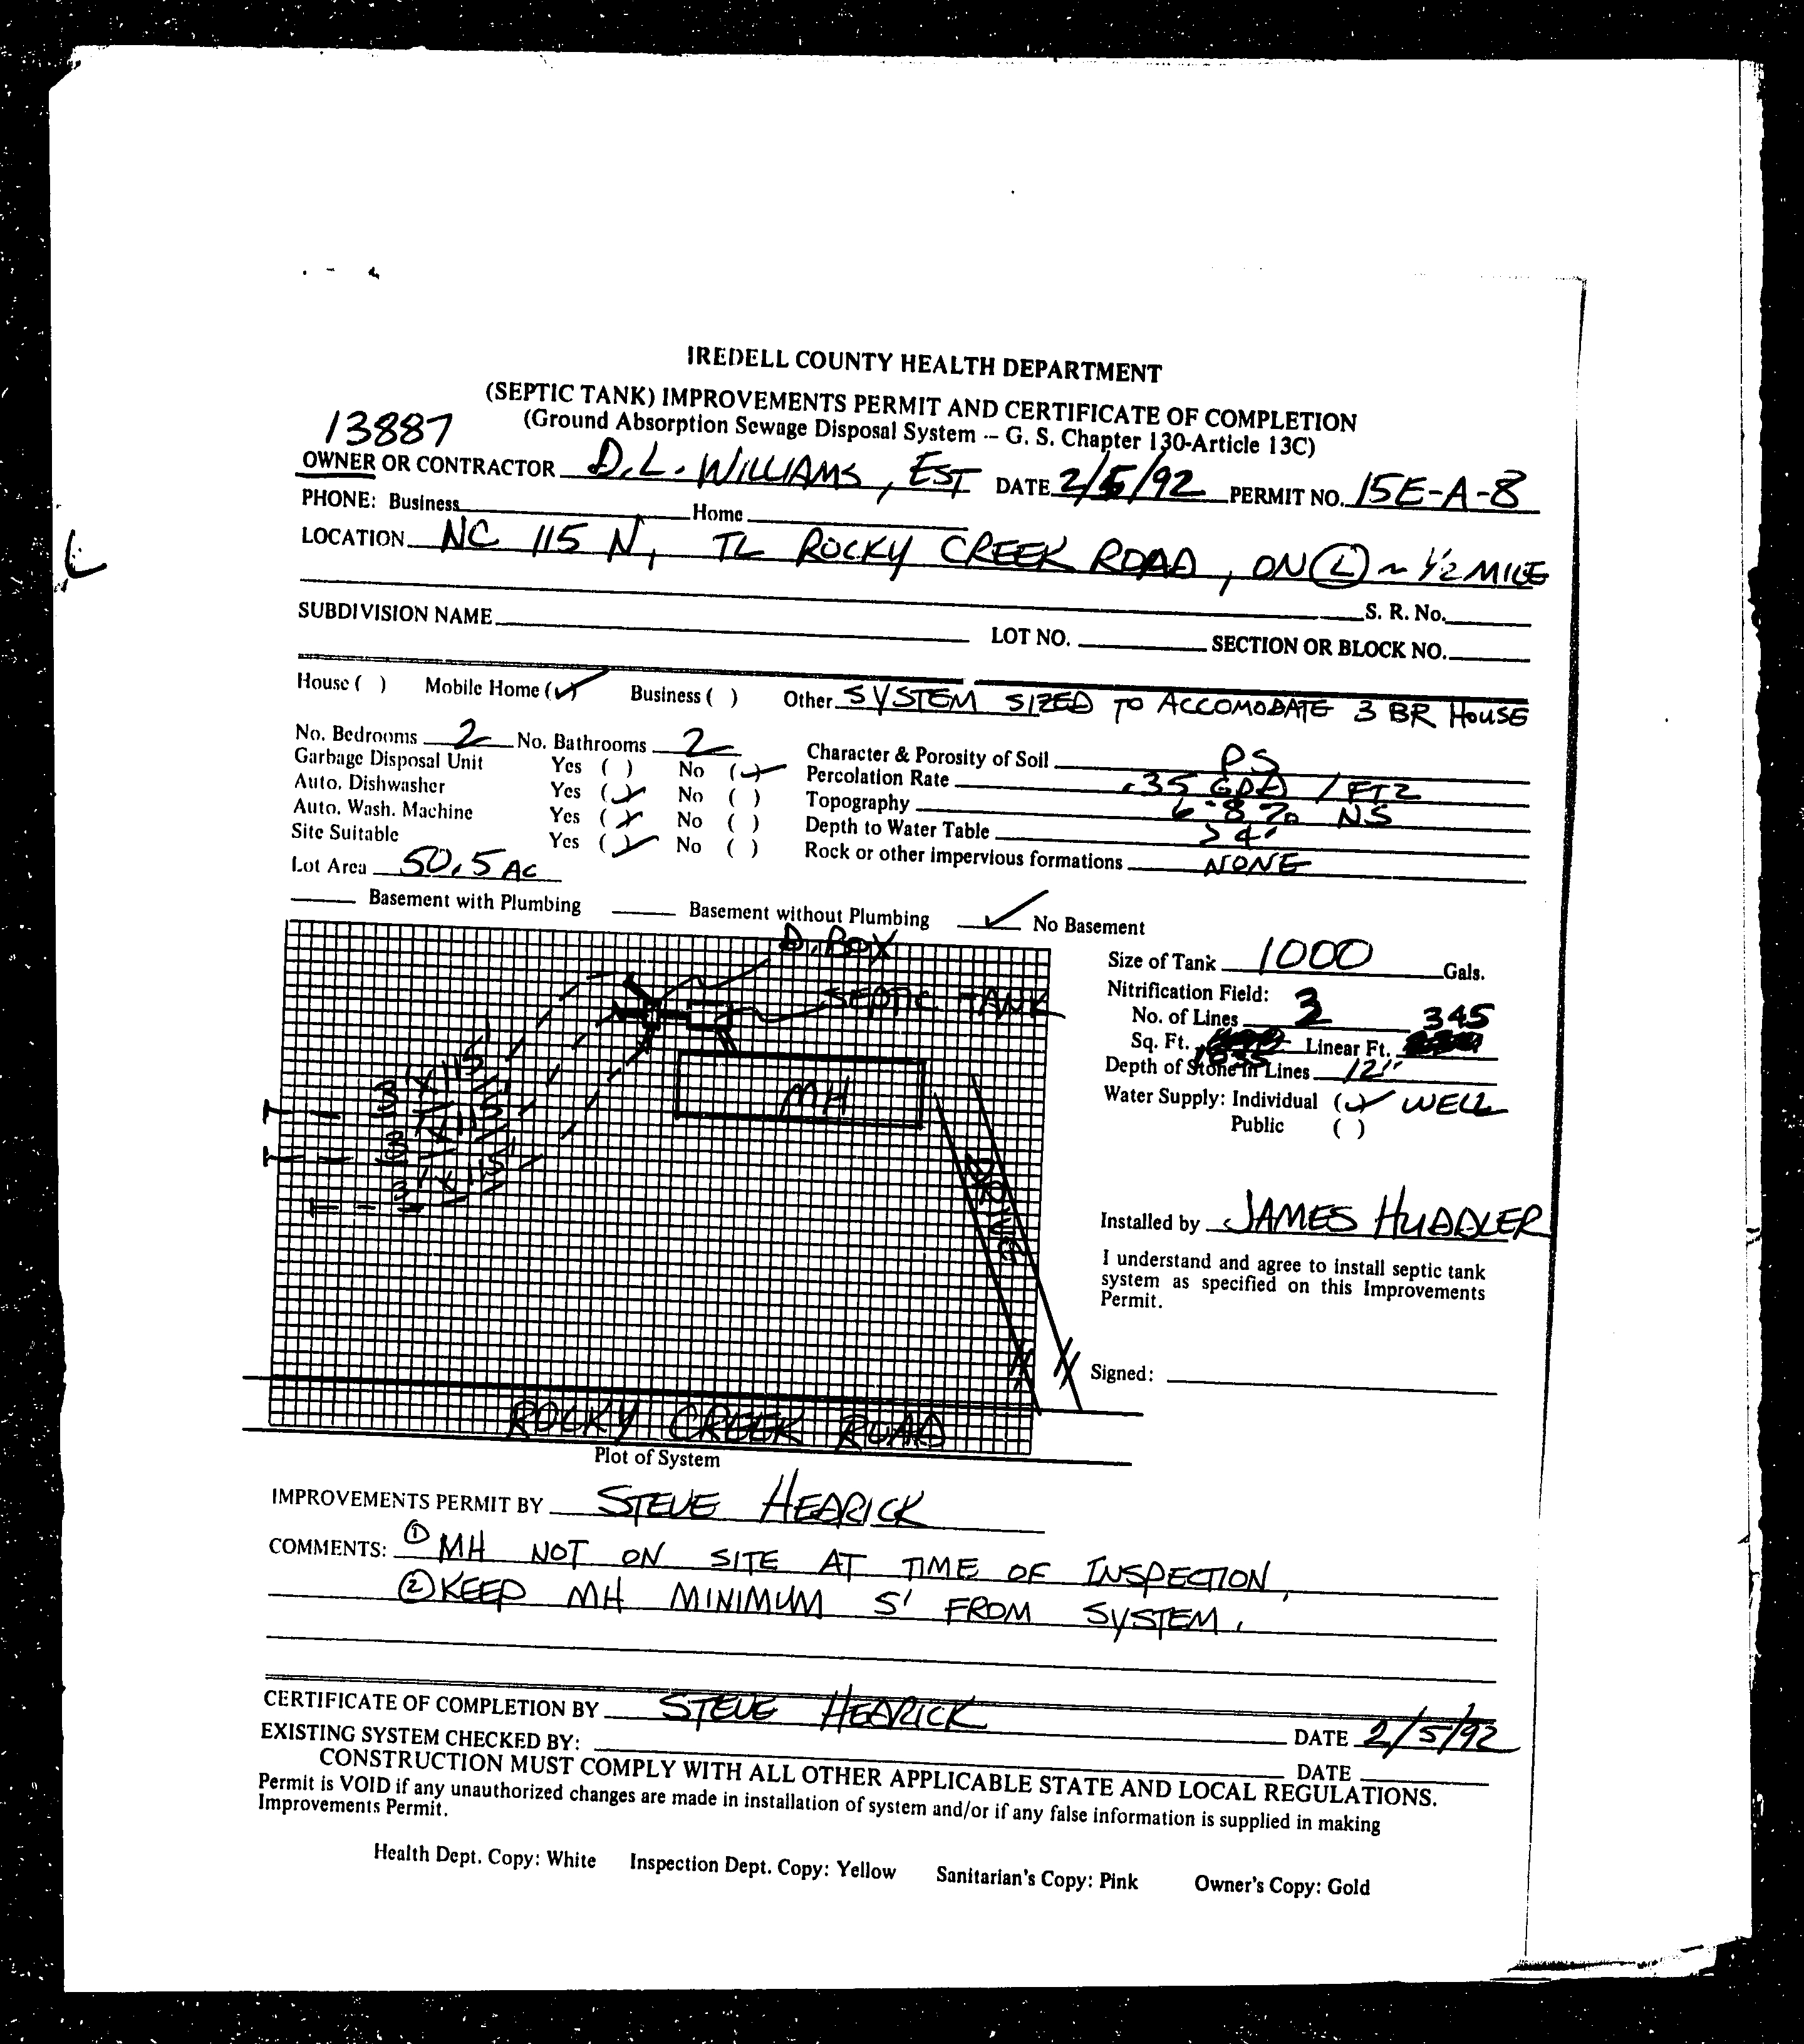 IREDELL COUNTY HEALTH DEPARTMENT
(SEPTIC TANK) IMPROVEMENTS PERMIT AND CERTIFICATE OF COMPLETION
13887 (Ground Absorption Sewage Disposal System -- G. S. Chapter 130-Article 13C)
OWNER OR CONTRACTOR D.L. WILLIAMS, EST DATE 2/5/92 PERMIT NO. 15E-A-8
PHONE: Business Home
LOCATION NC 115 N, TL ROCKY CREEK ROAD, ON (L) ~ 1/2 MILE
L
S. R. No.
SUBDIVISION NAME LOT NO. SECTION OR BLOCK NO.
House ( ) Mobile Home (✓) Business ( ) Other SYSTEM SIZED TO ACCOMODATE 3 BR HOUSE
No. Bedrooms 2 No. Bathrooms 2
Garbage Disposal Unit Yes ( ) No (✓)
Auto. Dishwasher Yes (✓) No ( )
Auto. Wash. Machine Yes (✓) No ( )
Site Suitable Yes (✓) No ( )
Lot Area 50.5 AC
Character & Porosity of Soil PS
Percolation Rate .35 GPD / FT2
Topography 6-8% NS
Depth to Water Table >4'
Rock or other impervious formations NONE
Basement with Plumbing Basement without Plumbing ✓ No Basement
D. BOX
SEPTIC TANK
MH
3' X 115'
3' X 115'
3' X 115'
DRIVE
ROCKY CREEK ROAD
Plot of System
Size of Tank 1000 Gals.
Nitrification Field:
No. of Lines 3 345
Sq. Ft. 1035 Linear Ft.
Depth of Stone in Lines 12"
Water Supply: Individual (✓) WELL
Public ( )
Installed by JAMES HUDDLER
I understand and agree to install septic tank
system as specified on this Improvements
Permit.
Signed:
IMPROVEMENTS PERMIT BY STEVE HEDRICK
COMMENTS: ① MH NOT ON SITE AT TIME OF INSPECTION,
② KEEP MH MINIMUM 5' FROM SYSTEM.
CERTIFICATE OF COMPLETION BY STEVE HEDRICK DATE 2/5/92
EXISTING SYSTEM CHECKED BY: DATE
CONSTRUCTION MUST COMPLY WITH ALL OTHER APPLICABLE STATE AND LOCAL REGULATIONS.
Permit is VOID if any unauthorized changes are made in installation of system and/or if any false information is supplied in making
Improvements Permit.
Health Dept. Copy: White Inspection Dept. Copy: Yellow Sanitarian's Copy: Pink Owner's Copy: Gold